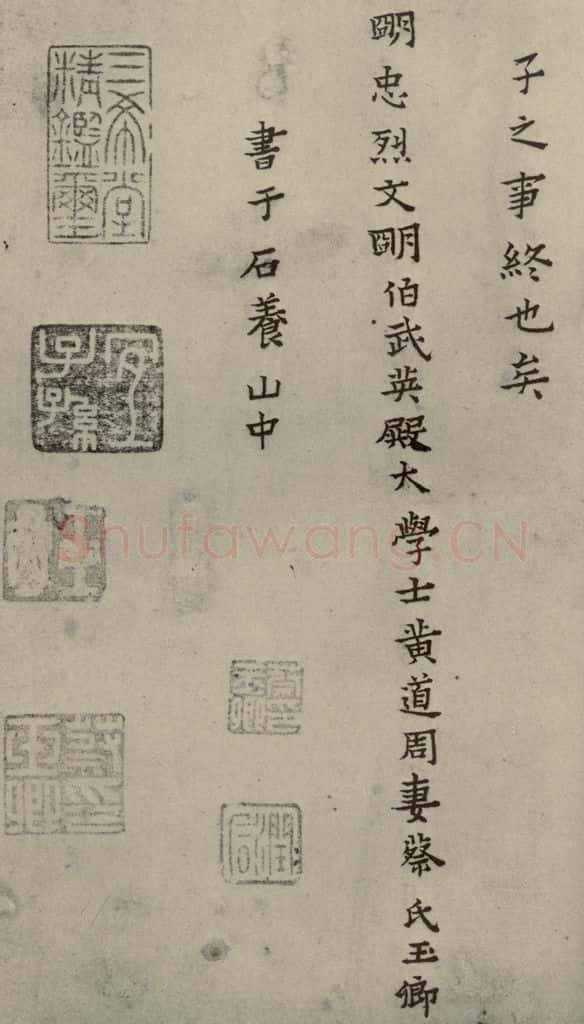 子之事終也矣
明忠烈文明伯武英殿大學士黃道周妻蔡氏玉卿
書于石養山中
三希堂精鑑璽
宜子孫
蔡氏玉卿
Shufawang.CN